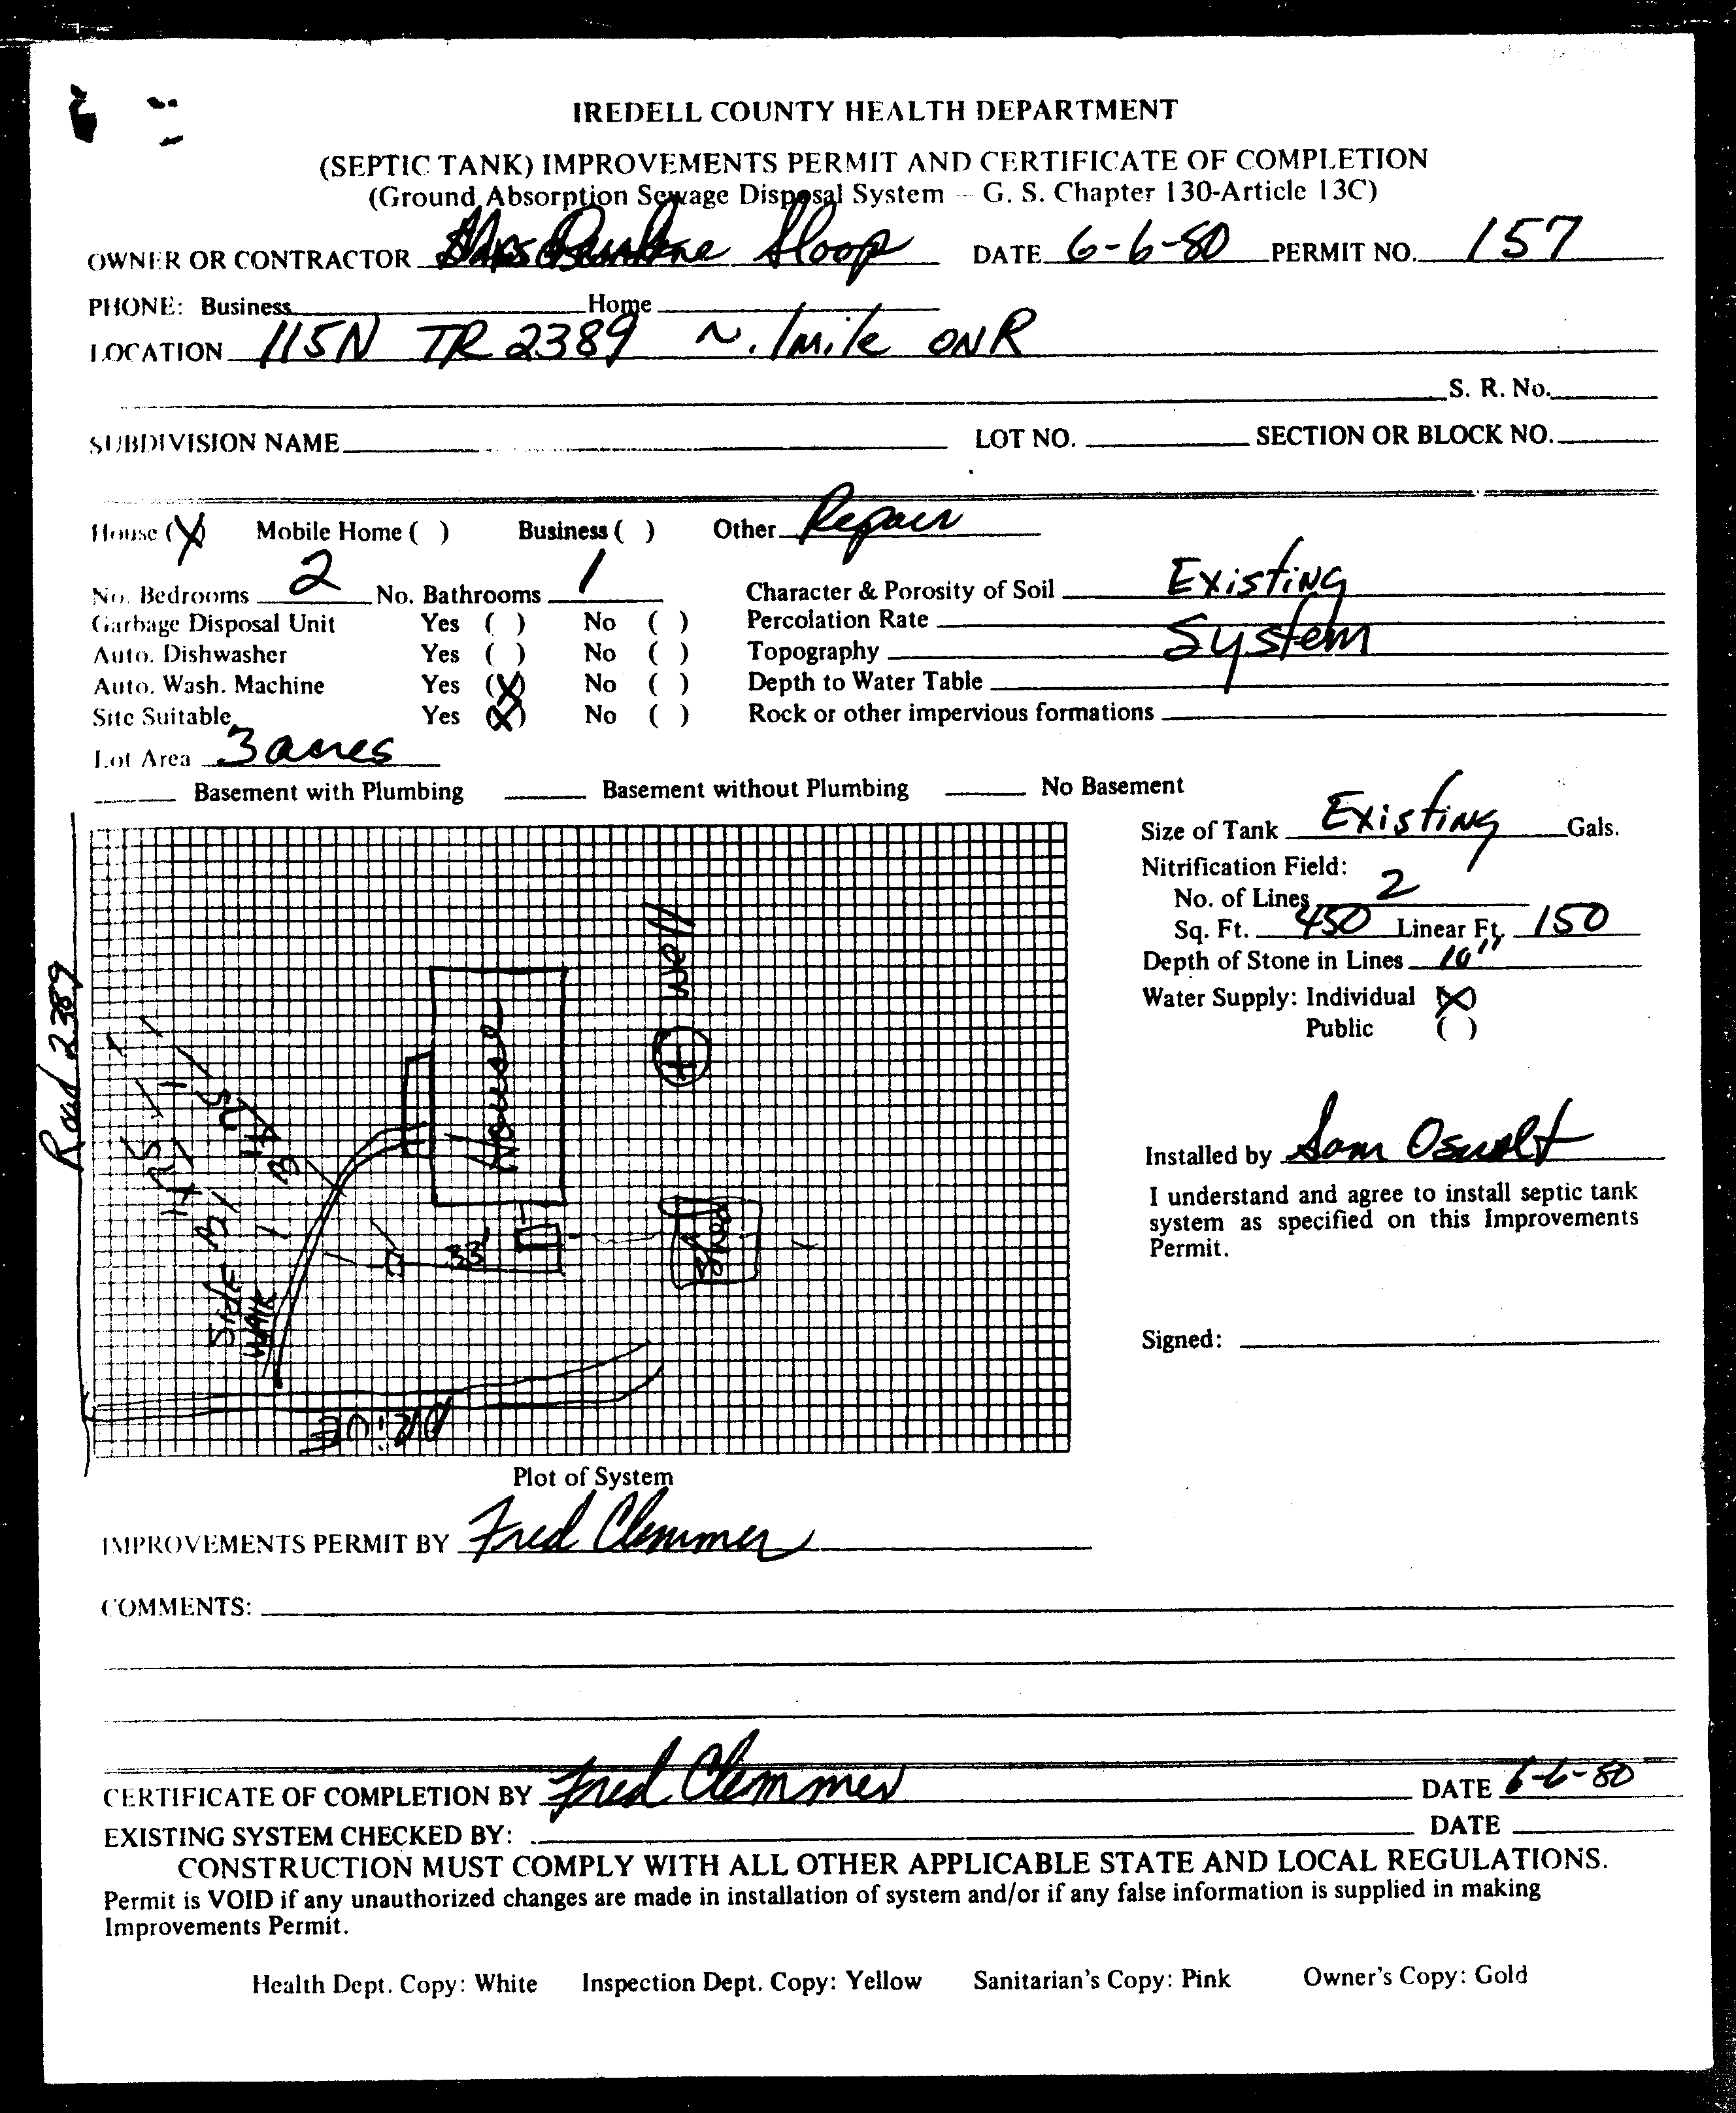 IREDELL COUNTY HEALTH DEPARTMENT
(SEPTIC TANK) IMPROVEMENTS PERMIT AND CERTIFICATE OF COMPLETION
(Ground Absorption Sewage Disposal System -- G. S. Chapter 130-Article 13C)
OWNER OR CONTRACTOR Mrs Sloop DATE 6-6-80 PERMIT NO. 157
PHONE: Business Home
LOCATION 115N TR 2389 ~ . 1mile ON R
S. R. No.
SUBDIVISION NAME LOT NO. SECTION OR BLOCK NO.
House (X) Mobile Home ( ) Business ( ) Other Repair
No. Bedrooms 2 No. Bathrooms 1 Character & Porosity of Soil Existing
Garbage Disposal Unit Yes ( ) No ( ) Percolation Rate System
Auto. Dishwasher Yes ( ) No ( ) Topography
Auto. Wash. Machine Yes (X) No ( ) Depth to Water Table
Site Suitable Yes (X) No ( ) Rock or other impervious formations
Lot Area 3 acres
Basement with Plumbing Basement without Plumbing No Basement
Size of Tank Existing Gals.
Nitrification Field:
No. of Lines 2
Sq. Ft. 450 Linear Ft. 150
Depth of Stone in Lines 10"
Water Supply: Individual (X)
Public ( )
Road 2389
well
House
Shed
33'
Side
WAlk
DRiVE
Installed by Sam Oswalt
I understand and agree to install septic tank
system as specified on this Improvements
Permit.
Signed:
Plot of System
IMPROVEMENTS PERMIT BY Fred Clemmer
COMMENTS:
CERTIFICATE OF COMPLETION BY Fred Clemmer DATE 6-6-80
EXISTING SYSTEM CHECKED BY: DATE
CONSTRUCTION MUST COMPLY WITH ALL OTHER APPLICABLE STATE AND LOCAL REGULATIONS.
Permit is VOID if any unauthorized changes are made in installation of system and/or if any false information is supplied in making
Improvements Permit.
Health Dept. Copy: White Inspection Dept. Copy: Yellow Sanitarian's Copy: Pink Owner's Copy: Gold